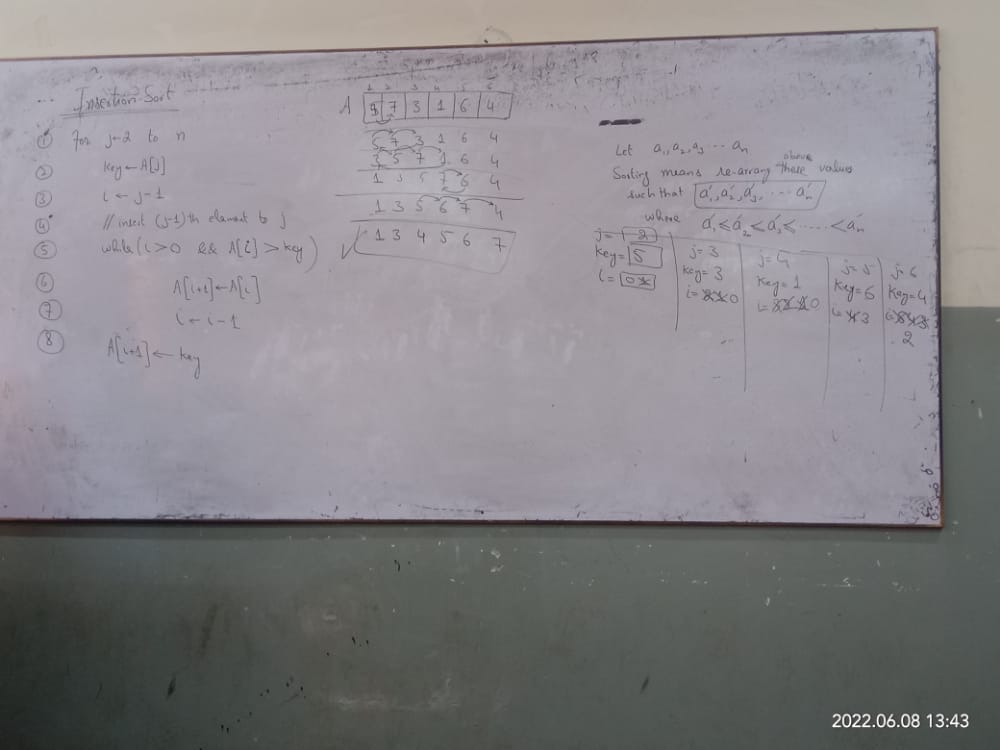 Insertion-Sort
① for j←2 to n
② key ← A[j]
③ i ← j-1
④ // insert (j-1)th element to j
⑤ while(i>0 && A[i] > key)
⑥ A[i+1] ← A[i]
⑦ i ← i-1
⑧ A[i+1] ← key
1 2 3 4 5 6
A 7 3 1 6 4
5 7 3 1 6 4
3 5 7 1 6 4
1 3 5 7 6 4
1 3 5 6 7 4
✓ 1 3 4 5 6 7
Let a₁, a₂, a₃ ... aₙ
above
Sorting means re-arrang these values
such that a₁′, a₂′, a₃′, .... aₙ′
where a₁′ ≤ a₂′ ≤ a₃′ ≤ ..... ≤ aₙ′
j= 2
key= 5
i= 0
j= 3
key= 3
i= 0
j= 4
key= 1
i= 0
j= 5
key= 6
i= 3
j= 6
key= 4
i=
2
2022.06.08 13:43